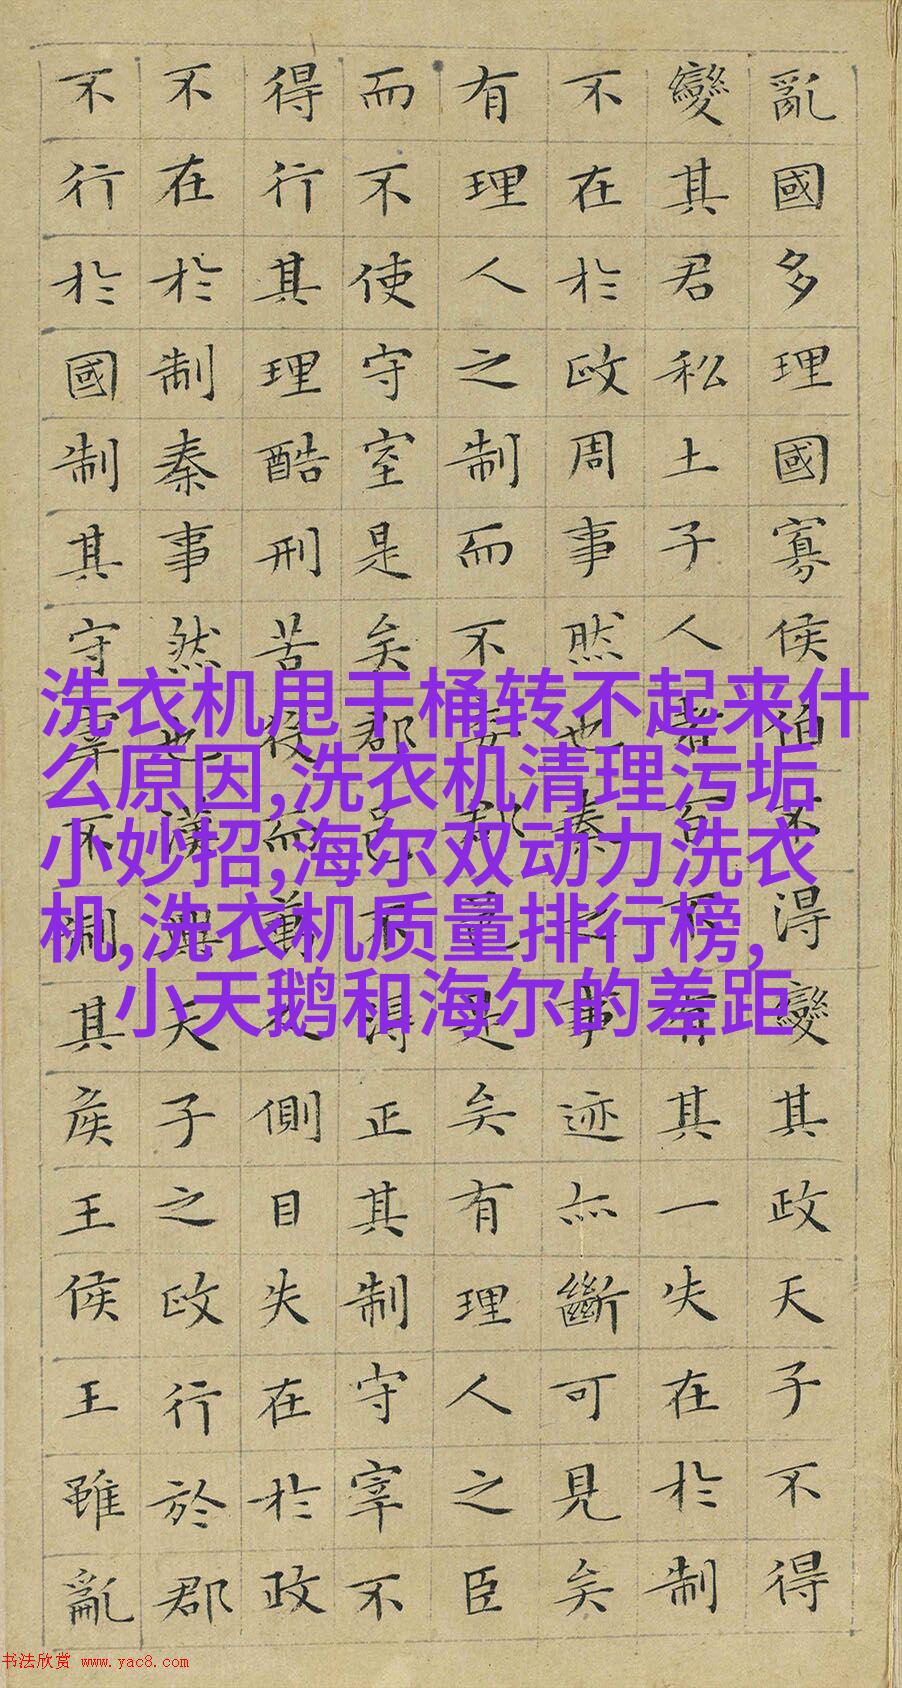 亂國多理國寡侯伯不得變其政天子不得
變其君私土子人者百不有其一失在於制
不在於政周事然也秦之事迹亦斷可見矣
有理人之制而不委郡邑是矣有理人之臣
而不使守宰是矣郡邑不得正其制守宰不
得行其理酷刑苦役而萬人側目失在於政
不在於制秦事然也漢興天子之政行於郡
不行於國制其守宰不制其侯王侯王雖亂
洗衣机甩干桶转不起来什
么原因,洗衣机清理污垢
小妙招,海尔双动力洗衣
机,洗衣机质量排行榜,
小天鹅和海尔的差距
书法欣赏 www.yac8.com